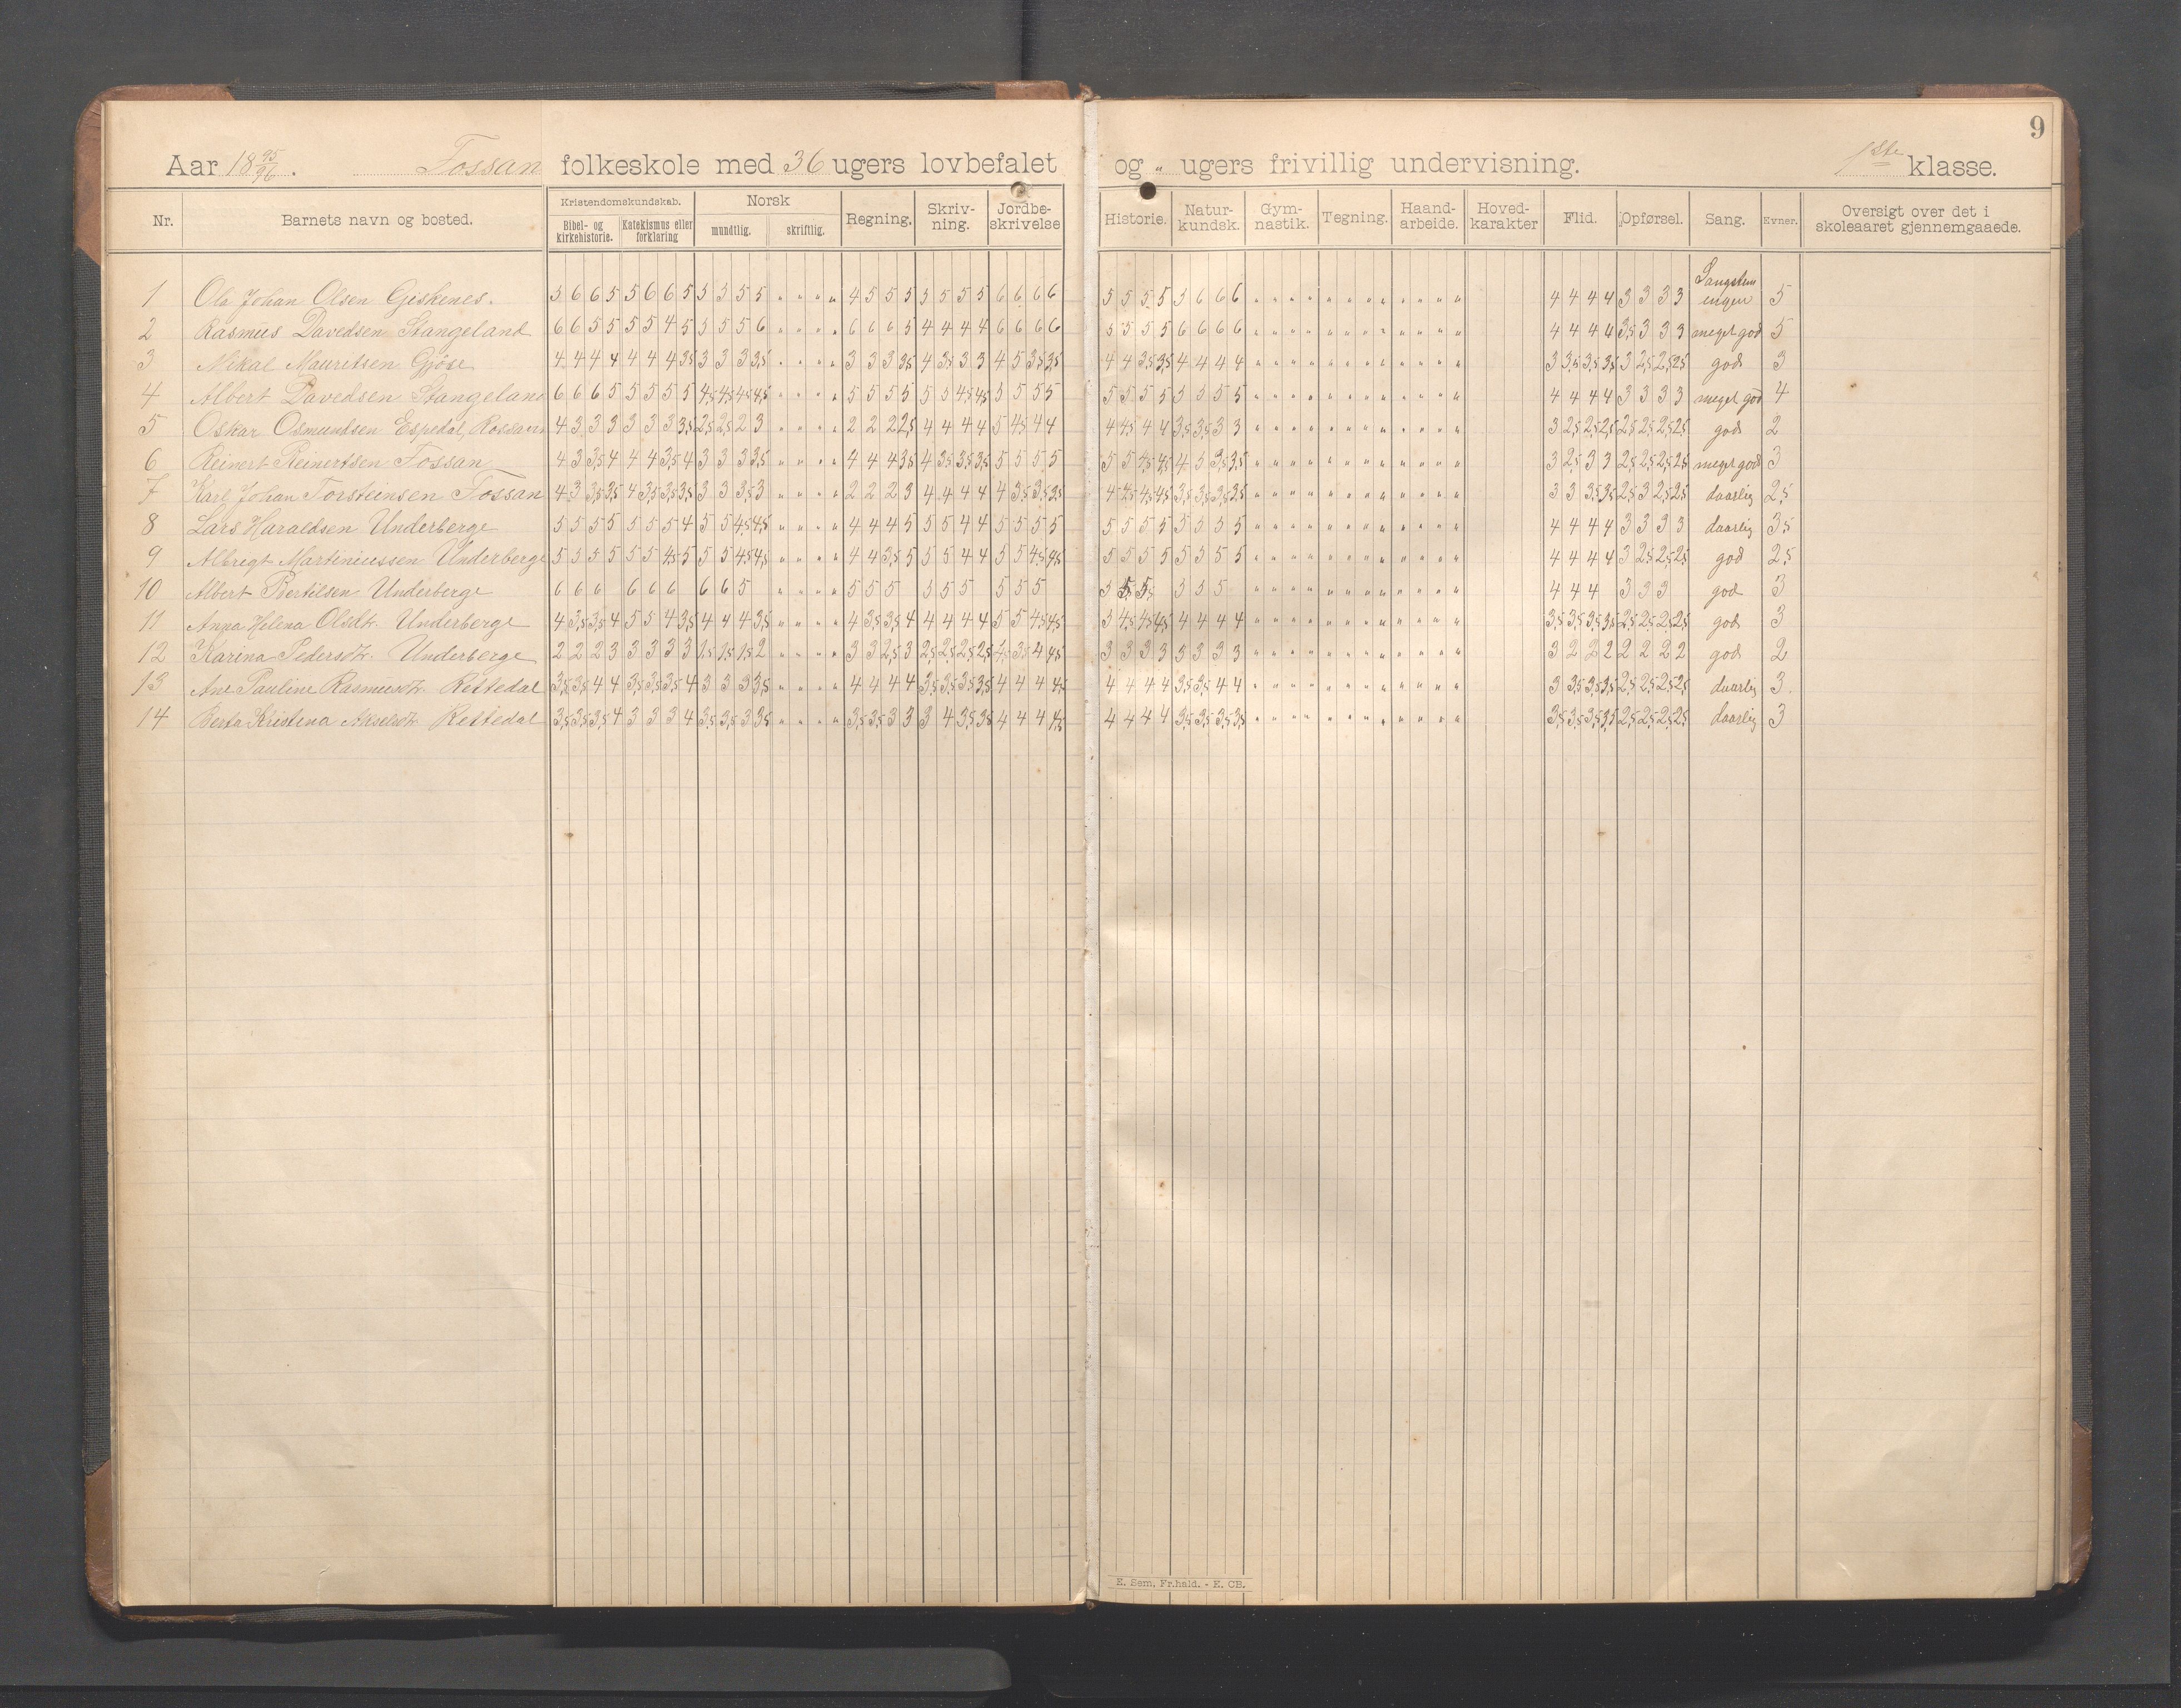 9
Aar 18 95/96. Fossan folkeskole med 36 ugers lovbefalet og " ugers frivillig undervisning. 1ste klasse.
Nr. Barnets navn og bosted. Kristendomskundskab. Bibel- og kirkehistorie. Katekismus eller forklaring Norsk mundtlig. skriftlig. Regning. Skriv-ning. Jordbe-skrivelse Historie. Natur-kundsk. Gym-nastik. Tegning. Haand-arbeide. Hoved-karakter Flid. Opførsel. Sang. Evner. Oversigt over det i skoleaaret gjennemgaaede.
1 Ola Johan Olsen Giskenes. 5 6 6 5 5 6 6 5 5 5 5 5 " " " " 4 5 5 5 5 5 5 5 6 6 6 6 5 5 5 5 5 6 6 6 " " " " " " " " " " " " 4 4 4 4 3 3 3 3 5
2 Rasmus Davedsen Stangeland 6 6 5 5 5 5 4 5 5 5 5 6 " " " " 6 6 6 5 4 4 4 4 6 6 6 6 5 5 5 5 6 6 6 6 " " " " " " " " " " " " 4 4 4 4 3,5 3 3 3 meget god 5
3 Mikal Mauretsen Gjöse 4 4 4 4 4 4 4 3,5 3 3 3 3,5 " " " " 3 3 3 3,5 4 3,5 3 3 4 5 3,5 3,5 4 4 3,5 3,5 4 4 4 4 " " " " " " " " " " " " 3 3,5 3,5 3,5 3 2,5 2,5 2,5 god 3
4 Albert Davedsen Stangeland 6 6 6 5 5 5 5 5 4,5 4,5 4,5 4,5 " " " " 5 5 5 5 5 5 4,5 4,5 5 5 5 5 5 5 5 5 5 5 5 5 " " " " " " " " " " " " 4 4 4 4 3 3 3 3 meget god 4
5 Oskar Osmundsen Espedal, 4 3 3 3 3 3 3 3,5 2,5 2,5 2 3 " " " " 2 2 2 2,5 4 4 4 4 5 4,5 4 4 4 4,5 4 4 3,5 3,5 3 3 " " " " " " " " " " " " 3 2,5 2,5 2,5 2,5 2,5 2,5 2,5 god 2
6 Reinert Reinertsen Fossan 4 3 3,5 4 4 4 3,5 4 3 3 3 3,5 " " " " 4 4 4 3,5 4 3,5 3,5 3,5 5 5 5 5 5 5 4,5 4,5 4 5 3,5 3,5 " " " " " " " " " " " " 3 2,5 3 3 2,5 2,5 2,5 2,5 meget god 3
7 Karl Johan Torsteinsen Fossan 4 3 3,5 3,5 4 3,5 3,5 3,5 3 3 3,5 3 " " " " 2 2 2 3 4 4 4 4 4 3,5 3,5 3,5 4 4,5 4,5 4,5 3,5 3,5 3,5 3,5 " " " " " " " " " " " " 3 3 3,5 3,5 2,5 3 2,5 2,5 daarlig 2,5
8 Lars Haraldsen Underberge 5 5 5 5 5 5 5 4 5 5 4,5 4,5 " " " " 4 4 4 5 5 5 4 4 5 5 5 5 5 5 5 5 5 5 5 5 " " " " " " " " " " " " 4 4 4 4 3 3 3 3 daarlig 3,5
9 Albregt Martiniussen Underberge 5 5 5 5 5 5 4,5 5 5 5 4,5 4,5 " " " " 4 4 3,5 5 5 5 4 4 5 5 4,5 4,5 5 5 5 5 5 5 5 5 " " " " " " " " " " " " 4 4 4 4 3 2,5 2,5 2,5 god 2,5
10 Albert Bertilsen Underberge 6 6 6 6 6 6 6 6 5 " " " " 5 5 5 5 5 5 5 5 5 5 5 5 5 5 5 " " " " " " " " " " " " 4 4 4 3 3 3 god 3
11 Anna Helena Olsdtr. Underberge 4 3,5 3,5 4 5 5 4 3,5 4 4 4 3,5 " " " " 4 3,5 3,5 4 4 4 4 4 5 5 4,5 4,5 5 4,5 4,5 4,5 4 4 4 4 " " " " " " " " " " " " 3,5 3,5 3,5 3,5 2,5 2,5 2,5 2,5 god 3
12 Karina Pedersdtr. Underberge 2 2 2 3 3 3 3 3 1,5 1,5 1,5 2 " " " " 3 3 2,5 3 2,5 2,5 2,5 2,5 4,5 3,5 4 4,5 3 3 3 3 3 3 3 3 " " " " " " " " " " " " 3 2 2 2 2 2 2 2 god 2
13 Ane Pauline Rasmusdtr. Rettedal 3,5 3,5 4 4 3,5 3,5 3,5 4 3 3 3 3,5 " " " " 4 4 4 4 3,5 3,5 3,5 3,5 4 4 4 4,5 4 4 4 4 3,5 3,5 4 4 " " " " " " " " " " " " 3 3,5 3,5 3,5 2,5 2,5 2,5 2,5 daarlig 3.
14 Berta Kristena Akselsdtr. Rettedal 3,5 3,5 3,5 4 3 3 3 4 3,5 3,5 3 3,5 " " " " 3,5 3,5 3 3 3 4 3,5 3,5 4 4 4 4,5 4 4 4 4 3,5 3,5 3,5 3,5 " " " " " " " " " " " " 3,5 3,5 3,5 3,5 2,5 2,5 2,5 2,5 daarlig 3
E. Sem, Fr.hald. - E. CB.